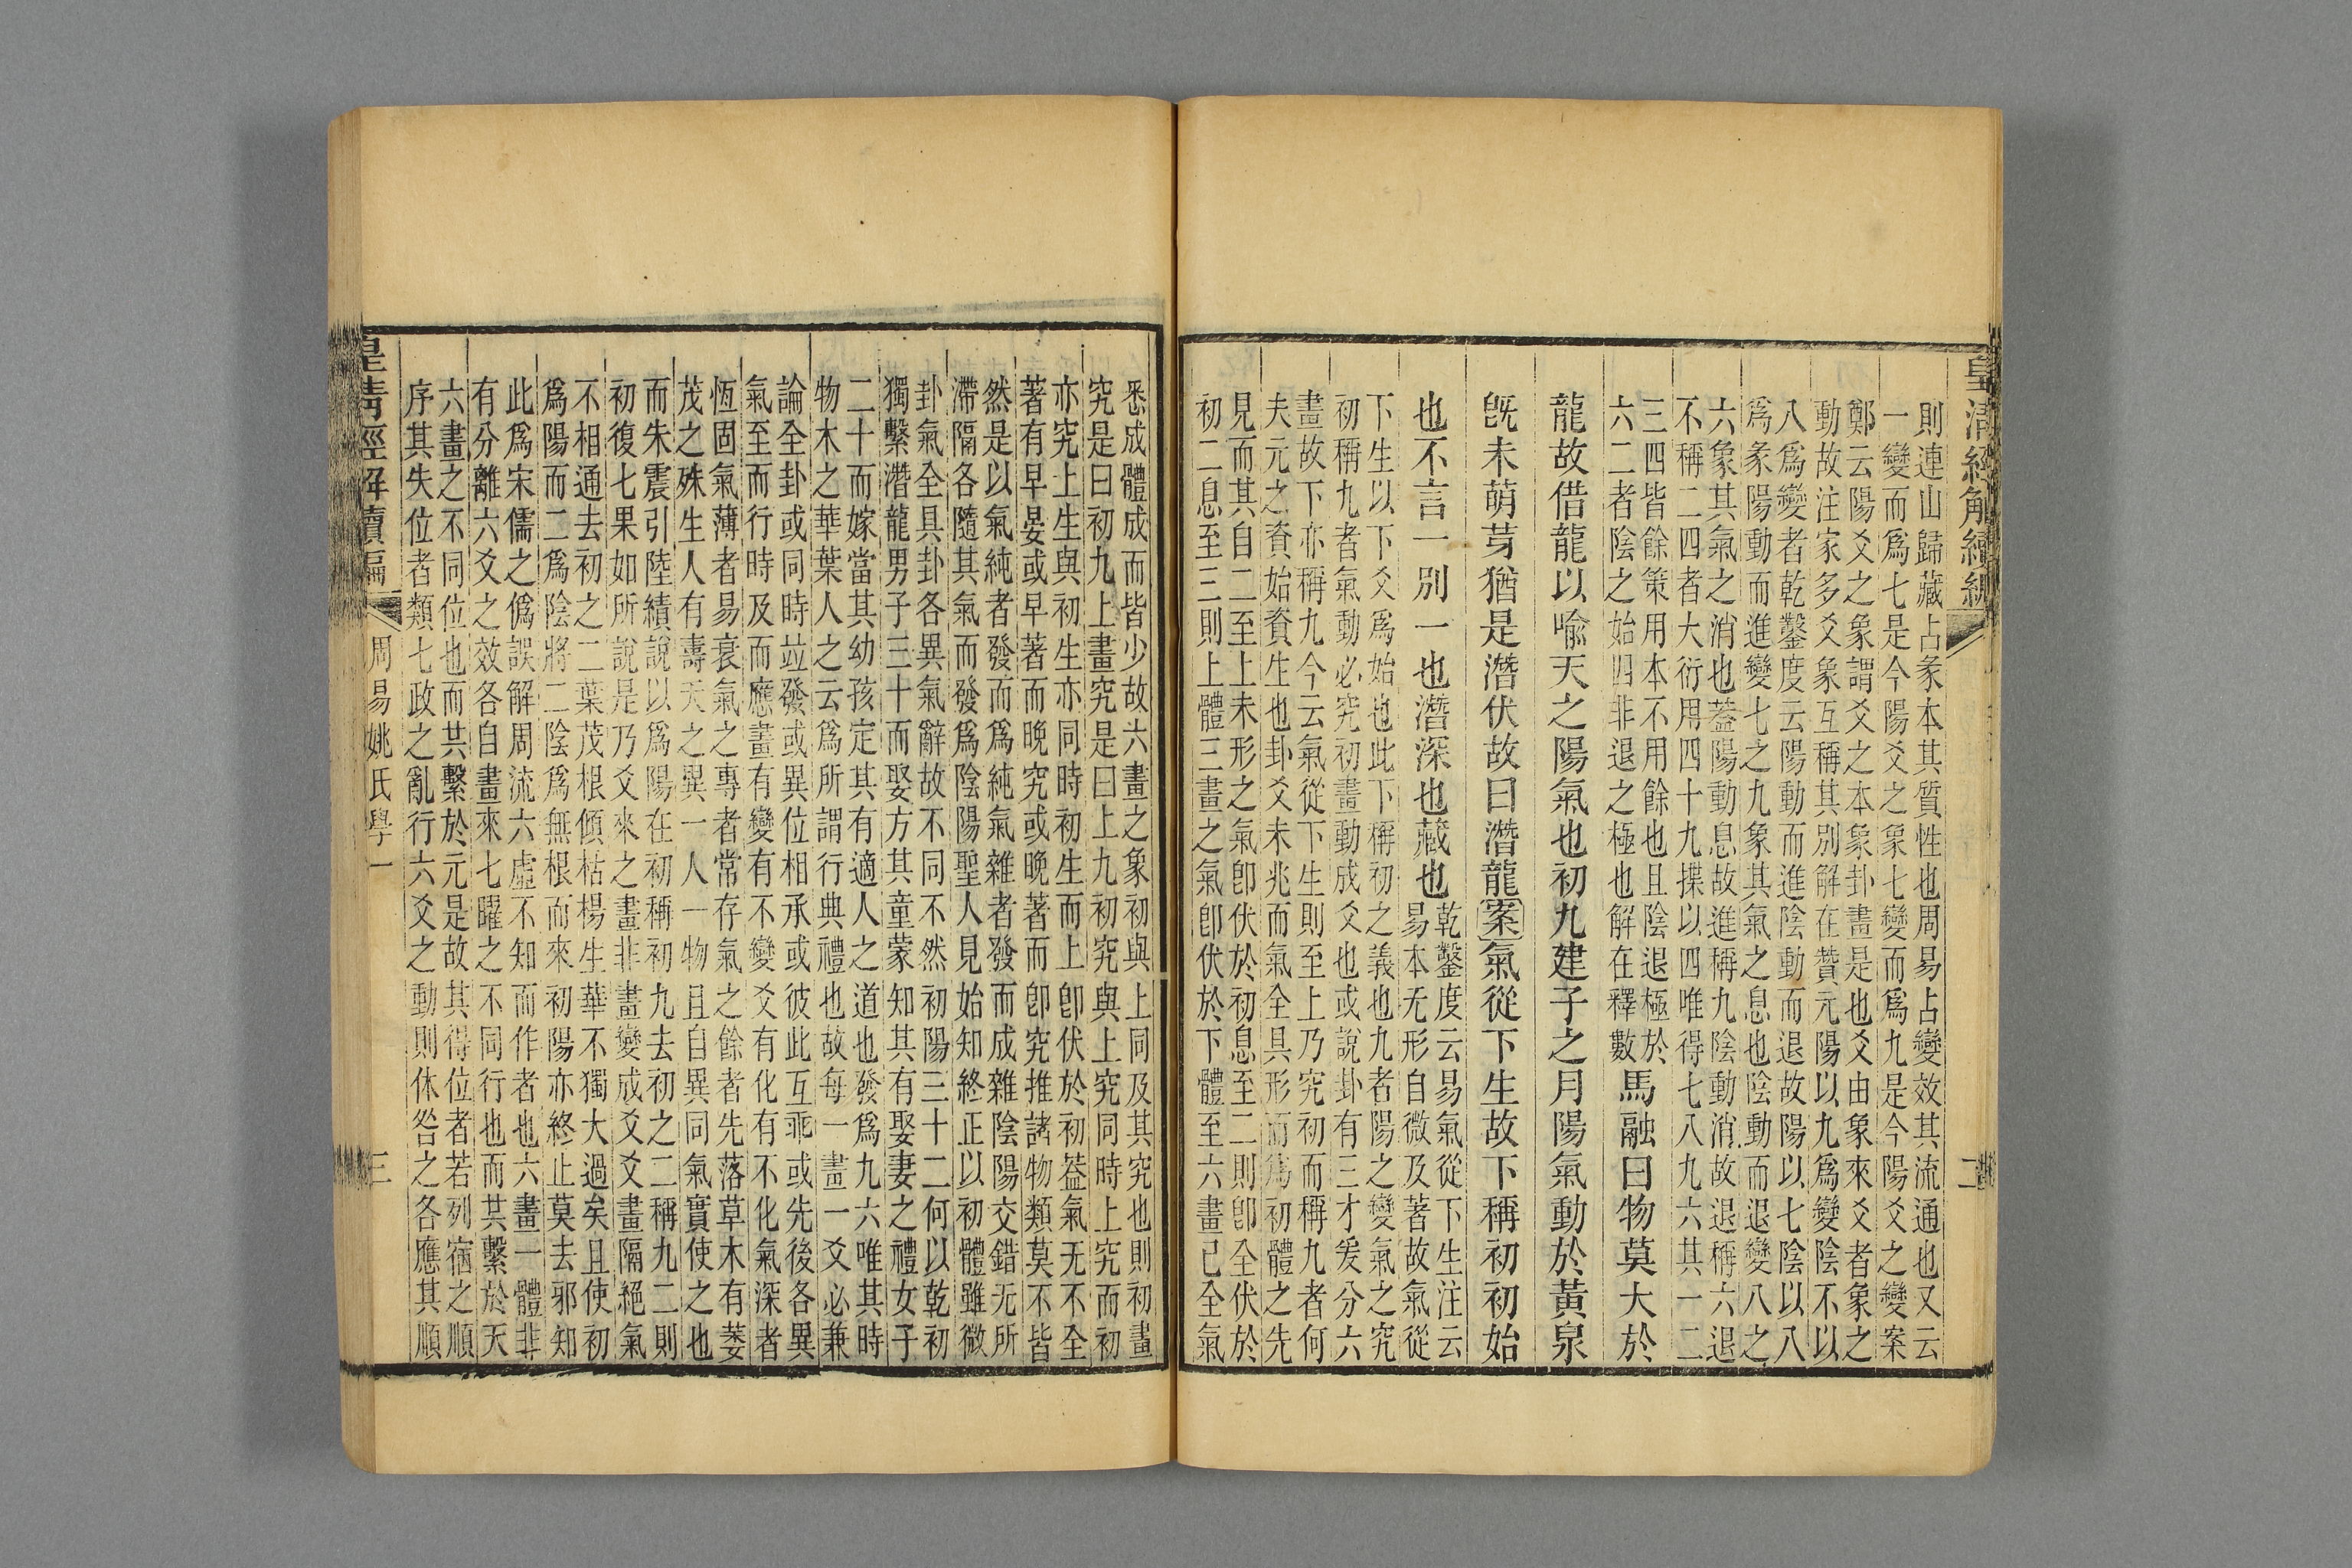 皇清經解續編
二
則連山歸藏占彖本其質性也周易占變效其流通也又云
一變而爲七是今陽爻之象七變而爲九是今陽爻之變案
鄭云陽爻之象謂爻之本象卦畫是也爻由象來爻者象之
動故注家多爻象互稱其別解在贊元陽以九爲變陰不以
八爲變者乾鑿度云陽動而進陰動而退故陽以七陰以八
爲彖陽動而進變七之九象其氣之息也陰動而退變八之
六象其氣之消也葢陽動息故進稱九陰動消故退稱六退
不稱二四者大衍用四十九揲以四唯得七八九六其一二
三四皆餘策用本不用餘也且陰退極於
六二者陰之始四非退之極也解在釋數
馬融曰物莫大於
龍故借龍以喻天之陽氣也初九建子之月陽氣動於黃泉
旣未萌芽猶是潛伏故曰潛龍案氣從下生故下稱初初始
也不言一別一也潛深也藏也
乾鑿度云易氣從下生注云
易本无形自微及著故氣從
下生以下爻爲始也此下稱初之義也九者陽之變氣之究
初稱九者氣動必究初畫動成爻也或說卦有三才爰分六
畫故下亦稱九今云氣從下生則至上乃究初而稱九者何
夫元之資始資生也卦爻未兆而氣全具形而爲初體之先
見而其自二至上未形之氣卽伏於初息至二則卽全伏於
初二息至三則上體三畫之氣卽伏於下體至六畫已全氣
悉成體成而皆少故六畫之象初與上同及其究也則初畫
究是曰初九上畫究是曰上九初究與上究同時上究而初
亦究上生與初生亦同時初生而上卽伏於初葢氣无不全
著有早晏或早著而晚究或晚著而卽究推諸物類莫不皆
然是以氣純者發而爲純氣雜者發而成雜陰陽交錯无所
滯隔各隨其氣而發爲陰陽聖人見始知終正以初體雖微
卦氣全具卦各異氣辭故不同不然初陽三十二何以乾初
獨繫潛龍男子三十而娶方其童蒙知其有娶妻之禮女子
二十而嫁當其幼孩定其有適人之道也發爲九六唯其時
物木之華葉人之云爲所謂行典禮也故每一畫一爻必兼
論全卦或同時竝發或異位相承或彼此互乖或先後各異
氣至而行時及而應畫有變有不變爻有化有不化氣深者
恆固氣薄者易衰氣之專者常存氣之餘者先落草木有萎
茂之殊生人有壽夭之異一人一物且自異同氣實使之也
而朱震引陸績說以爲陽在初稱初九去初之二稱九二則
初復七果如所說是乃爻來之畫非畫變成爻爻畫隔絕氣
不相通去初之二葉茂根傾枯楊生華不獨大過矣且使初
爲陽而二爲陰將二陰爲無根而來初陽亦終止莫去邪知
此爲宋儒之僞誤解周流六虛不知而作者也六畫一體非
有分離六爻之效各自畫來七曜之不同行也而其繫於天
六畫之不同位也而其繫於元是故其得位者若列宿之順
序其失位者類七政之亂行六爻之動則休咎之各應其順
皇清經解續編
周易姚氏學一
三